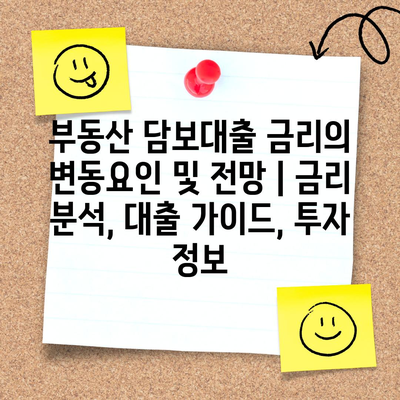 부동산 담보대출 금리의
변동요인 및 전망 | 금리
분석, 대출 가이드, 투자
정보